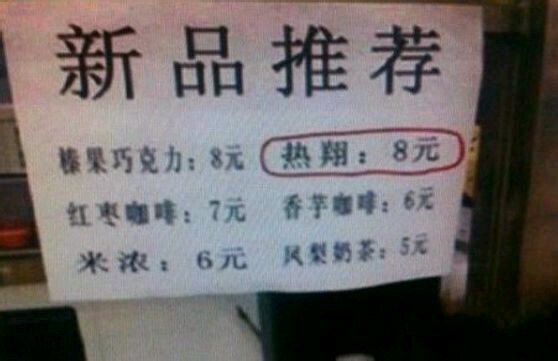 新品推荐
榛果巧克力：8元 热翔：8元
红枣咖啡：7元 香芋咖啡：6元
米浓：6元 凤梨奶茶：5元